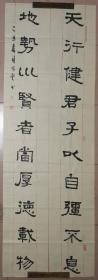 天行健君子以自彊不息
地勢川賢者當厚德載物